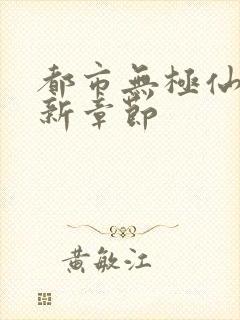 都市無極仙
新章節
黃敏江